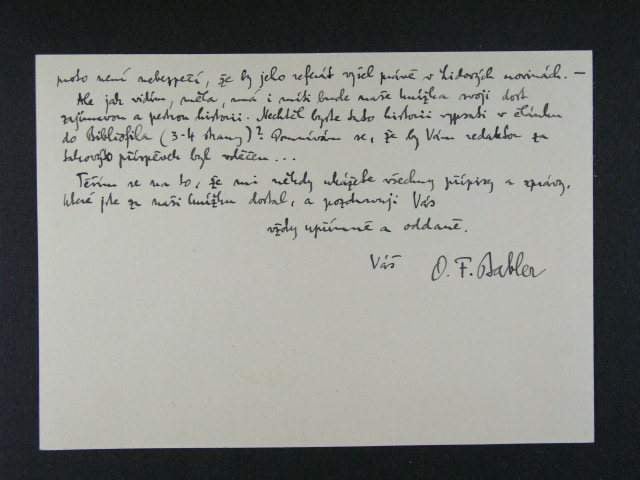 proto není nebezpečí, že by jeho referát vyšel právě v Lidových novinách. —
Ale jak vidím, měla, má i míti bude naše knížka svoji dost
zajímavou a pestrou historii. Nechtěl byste tuto historii vypsati v článku
do Bibliofila (3-4 strany)? Domnívám se, že by Vám redaktor za
takový příspěvek byl vděčen...
Těším se na to, že mi někdy ukážete všechny přípisy a zprávy,
které jste za naši knížku dostal, a pozdravuji Vás
vždy upřímně a oddaně.
Váš O. F. Babler